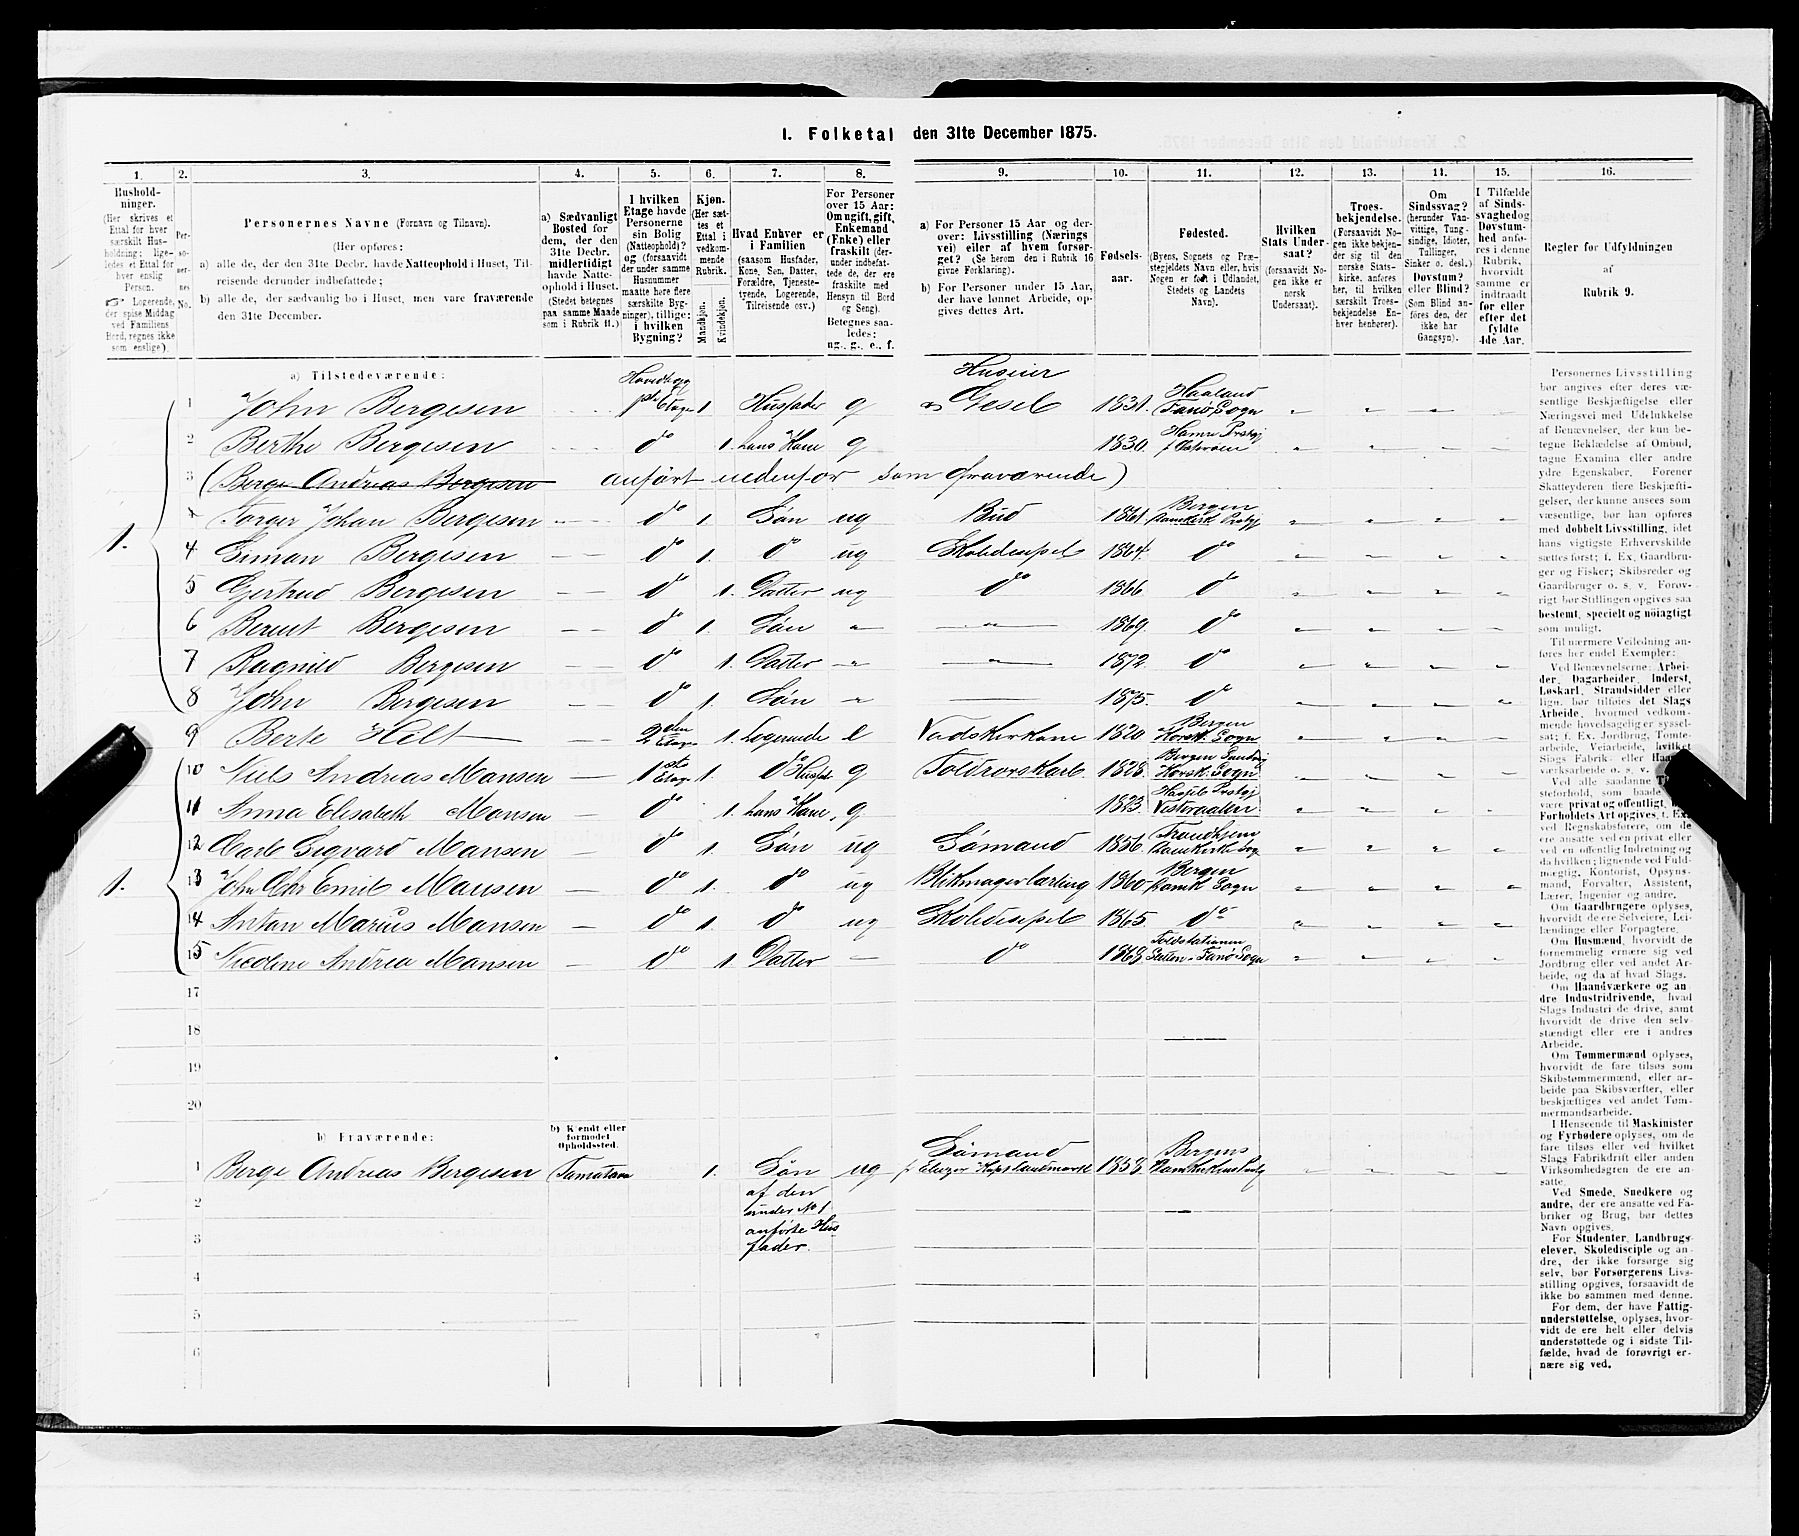 1. Folketal den 31te December 1875.
1. 2. 3. 4. 5. 6. 7. 8. 9. 10. 11. 12. 13. 14. 15. 16.
Hushold-
ninger.
(Her skrives et
Ettal for hver
særskilt Hus-
holdning; lige-
ledes et Ettal for
hver enslig
Person.
☞ Logerende,
der spise Middag
ved Familiens
Bord, regnes ikke
som enslige).
Per-
so-
ner-
nes
No.
Personernes Navne (Fornavn og Tilnavn).
(Her opføres:
a) alle de, der den 31te Decbr. havde Natteophold i Huset, Til-
reisende derunder indbefattede;
b) alle de, der sædvanlig bo i Huset, men vare fraværende
den 31te December.
a) Sædvanligt
Bosted for
dem, der den
31te Decbr.
midlertidigt
havde Natte-
ophold i Huset.
(Stedet betegnes
paa samme Maade
som i Rubrik 11.)
I hvilken
Etage havde
Personerne
sin Bolig
(Natteophold)?
og (forsaavidt
der under samme
Husnummer
maatte høre flere
særskilte Byg-
ninger), tillige:
i hvilken
Bygning?
Kjøn.
(Her sæt-
tes et
Ettal i
vedkom-
mende
Rubrik.
Mandkjøn.
Kvindekjøn.
Hvad Enhver er
i Familien
(saasom Husfader,
Kone, Søn, Datter,
Forældre, Tjeneste-
tyende, Logerende,
Tilreisende osv.)
For Personer
over 15 Aar:
Om ugift, gift,
Enkemand
(Enke) eller
fraskilt (der-
under indbefat-
tede de, der ere
fraskilte med
Hensyn til Bord
og Seng).
Betegnes saa-
ledes:
ug., g., e., f.
a) For Personer 15 Aar og der-
over: Livsstilling (Nærings
vei) eller af hvem forsør-
get? (Se herom den i Rubrik 16
givne Forklaring).
b) For Personer under 15 Aar,
der have lønnet Arbeide, op-
gives dettes Art.
Fødsels-
aar.
Fødested.
(Byens, Sognets og Præ-
stegjeldets Navn eller, hvis
Nogen er født i Udlandet,
Stedets og Landets
Navn).
Hvilken
Stats Under-
saat?
(forsaavidt No-
gen ikke er
norsk
Undersaat).
Troes-
bekjendelse.
(Forsaavidt No-
gen ikke bekjen-
der sig til den
norske Stats-
kirke, anføres
her, til hvilken
særskilt Troes-
bekjendelse En-
hver henhører).
Om
Sindssvag?
(herunder Van-
vittige, Tung-
sindige, Idioter,
Tullinger,
Sinker o. desl.)
Døvstum?
eller Blind?
(Som Blind an-
føres den, der
ikke har
Gangsyn).
I Tilfælde
af Sinds-
svaghed og
Døvstum-
hed anfø-
res i denne
Rubrik,
hvorvidt
samme er
indtraadt
før eller
efter det
fyldte
4de Aar.
Regler for Udfyldningen
af
Rubrik 9.
a) Tilstedeværende:
1 John Bergesen 1ste Etage 1 Husfader g Huseier Gesel 1831 Haaland Fanø Sogn
2 Berthe Bergesen do 1. hans Kone g 1830
3 (Berge Andreas Bergesen anført nedenfor som fraværende)
Torger Johan Bergesen do 1. Søn ug Bud 1861 Bergen
1. 4 Simon Bergesen do 1. do ug Skoledisipel 1864. do
5 Gjertrud Bergesen do 1. Datter ug do 1866 do
6 Bernt Bergesen do 1. Søn 1869. do
7 Ragnild Bergesen do 1. Datter 1872. do
8 John Bergesen do 1. Søn 1875. do
9 Berte Helt 2den Etage 1. Logerende e Vadskerkone 1820 Bergen Korsk. Sogn
10 Niels Andreas Mansen 1ste Etage 1. do Husfad g Toldrorskarl 1828. Bergen Korsk. Sogn
11 Anna Elisabeth Mansen do 1. hans Kone. g 1823. Vesteraalen
12 Carl Sigvard Mansen do 1. Søn ug Sømand 1856. Trondhjem Domkirke Sogn
1. 13 John Chr Emil Mansen do 1. do ug Blikmagerlærling 1860 Bergen Domk. Sogn
14 Anton Marius Mansen do 1. do ug Skoledisipel 1865. do
15 Nicoline Andrea Mansen do 1. Datter do 1868. Toldstationen Fanø Sogn
17
18
19
20
b) Fraværende:
b) Kjendt eller
formodet
Opholdssted.
1 Berge Andreas Bergesen 1. Søn ug Sømand 1858. Bergens
af den
under No 1
anførte Hus
fader.
2
3
4
5
6
Personernes Livsstilling
bør angives efter deres væ-
sentlige Beskjæftigelse eller
Næringsvei med Udelukkelse
af Benævnelser, der kun be-
tegne Beklædelse af Ombud,
tagne Examina eller andre
ydre Egenskaber. Forener
Skatteyderen flere Beskjæfti-
gelser, der kunne ansees som
væsentlige, bør han opføres
med dobbelt Livsstilling, idet
hans vigtigste Erhvervskilde
sættes først; f. Ex. Gaardbru-
ger og Fisker; Skibsreder og
Gaardbruger o. s. v. Forøv-
rigt bør Stillingen opgives saa
bestemt, specielt og nøiagtigt
som muligt.
Til nærmere Veiledning an-
føres her endel Exempler:
Ved Benævnelserne: Arbei-
der, Dagarbeider, Inderst,
Løskarl, Strandsidder eller
lign. bør tilføies det Slags
Arbeide, hvormed vedkom-
mende hovedsagelig er syssel-
sat; f. Ex. Jordbrug, Tomte-
arbeide, Veiarbeide, hvilket
Slags Fabrik- eller
værksarbeide o. s. v.
Ved alle saadanne
steforhold, som baade
være privat og offentligt,
Forholdets Art opgives, f. Ex.
ved Regnskabsførere, om de
ere ansatte ved en privat eller
ved en offentlig Indretning og
da hvilken; lignende ved Fuld-
mægtig, Kontorist, Opsyns-
mand, Forvalter, Assistent,
Lærer, Ingeniør og andre.
Om Gaardbrugere oplyses,
hvorvidt de ere Selveiere, Lei-
lændinge eller Forpagtere.
Om Husmænd, hvorvidt de
fornemmelig ernære sig ved
Jordbrug eller ved andet Ar-
beide, og da af hvad Slags.
Om Haandværkere og an-
dre Industridrivende, hvad
Slags Industri de drive, samt
hvorvidt de drive den selv-
stændigt eller ere i andres
Arbeide.
Om Tømmermænd oplyses,
hvorvidt de fare tilsøs som
Skibstømmermænd, eller ar-
beide paa Skibsværfter, eller
beskjæftiges ved andet Tøm-
mermandsarbeide.
I Henseende til Maskinister
og Fyrbødere oplyses, om de
fare tilsøs eller ved hvilket
Slags Fabrikdrift eller anden
Virksomhedsgren de ere an-
satte.
Ved Smede, Snedkere og
andre, der ere ansatte ved Fa-
briker og Brug, bør dettes
Navn opgives.
For Studenter, Landbrugs-
elever, Skoledisciple og an-
dre, der ikke forsørge sig
selv, bør Forsørgerens Livs-
stilling opgives, forsaavidt de
ikke bo sammen med denne.
For dem, der have Fattig-
understøttelse, oplyses, hvor-
vidt de ere helt eller delvis
understøttede og i sidste Til-
fælde, hvad de forøvrigt er-
nære sig ved.